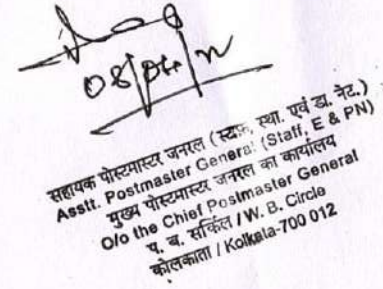 सहायक पोस्टमास्टर जनरल (स्टाफ, स्था. एवं डा. नेट.)
Asstt. Postmaster General (Staff, E & PN)
मुख्य पोस्टमास्टर जनरल का कार्यालय
O/o the Chief Postmaster General
प. ब. सर्किल / W. B. Circle
कोलकाता / Kolkala-700 012